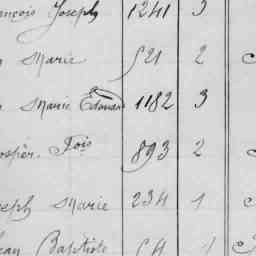 ancois Joseph 1241 3
Marie 521 2
Marie Edouard 1182 3
osper. Fois 893 2
seph Marie 234 1
ean Baptiste 64 1